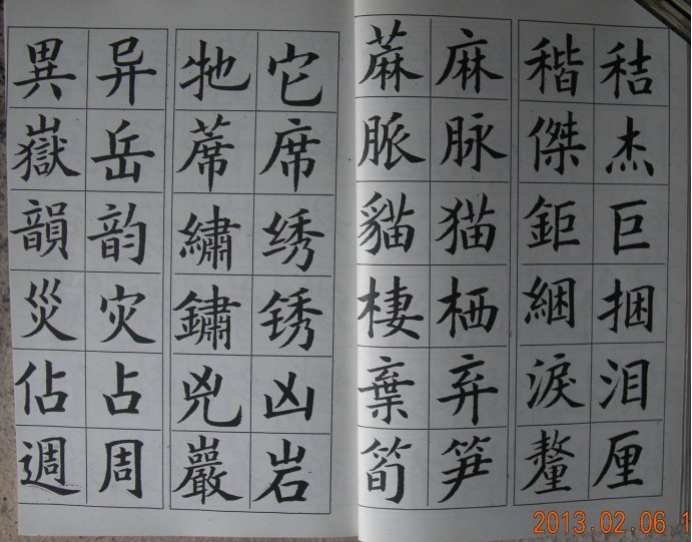 異 异 牠 它 蔴 麻 稭 秸
嶽 岳 蓆 席 脈 脉 傑 杰
韻 韵 繡 绣 貓 猫 鉅 巨
災 灾 鏽 锈 棲 栖 綑 捆
佔 占 兇 凶 棄 弃 淚 泪
週 周 巖 岩 筍 笋 釐 厘
2013.02.06 1